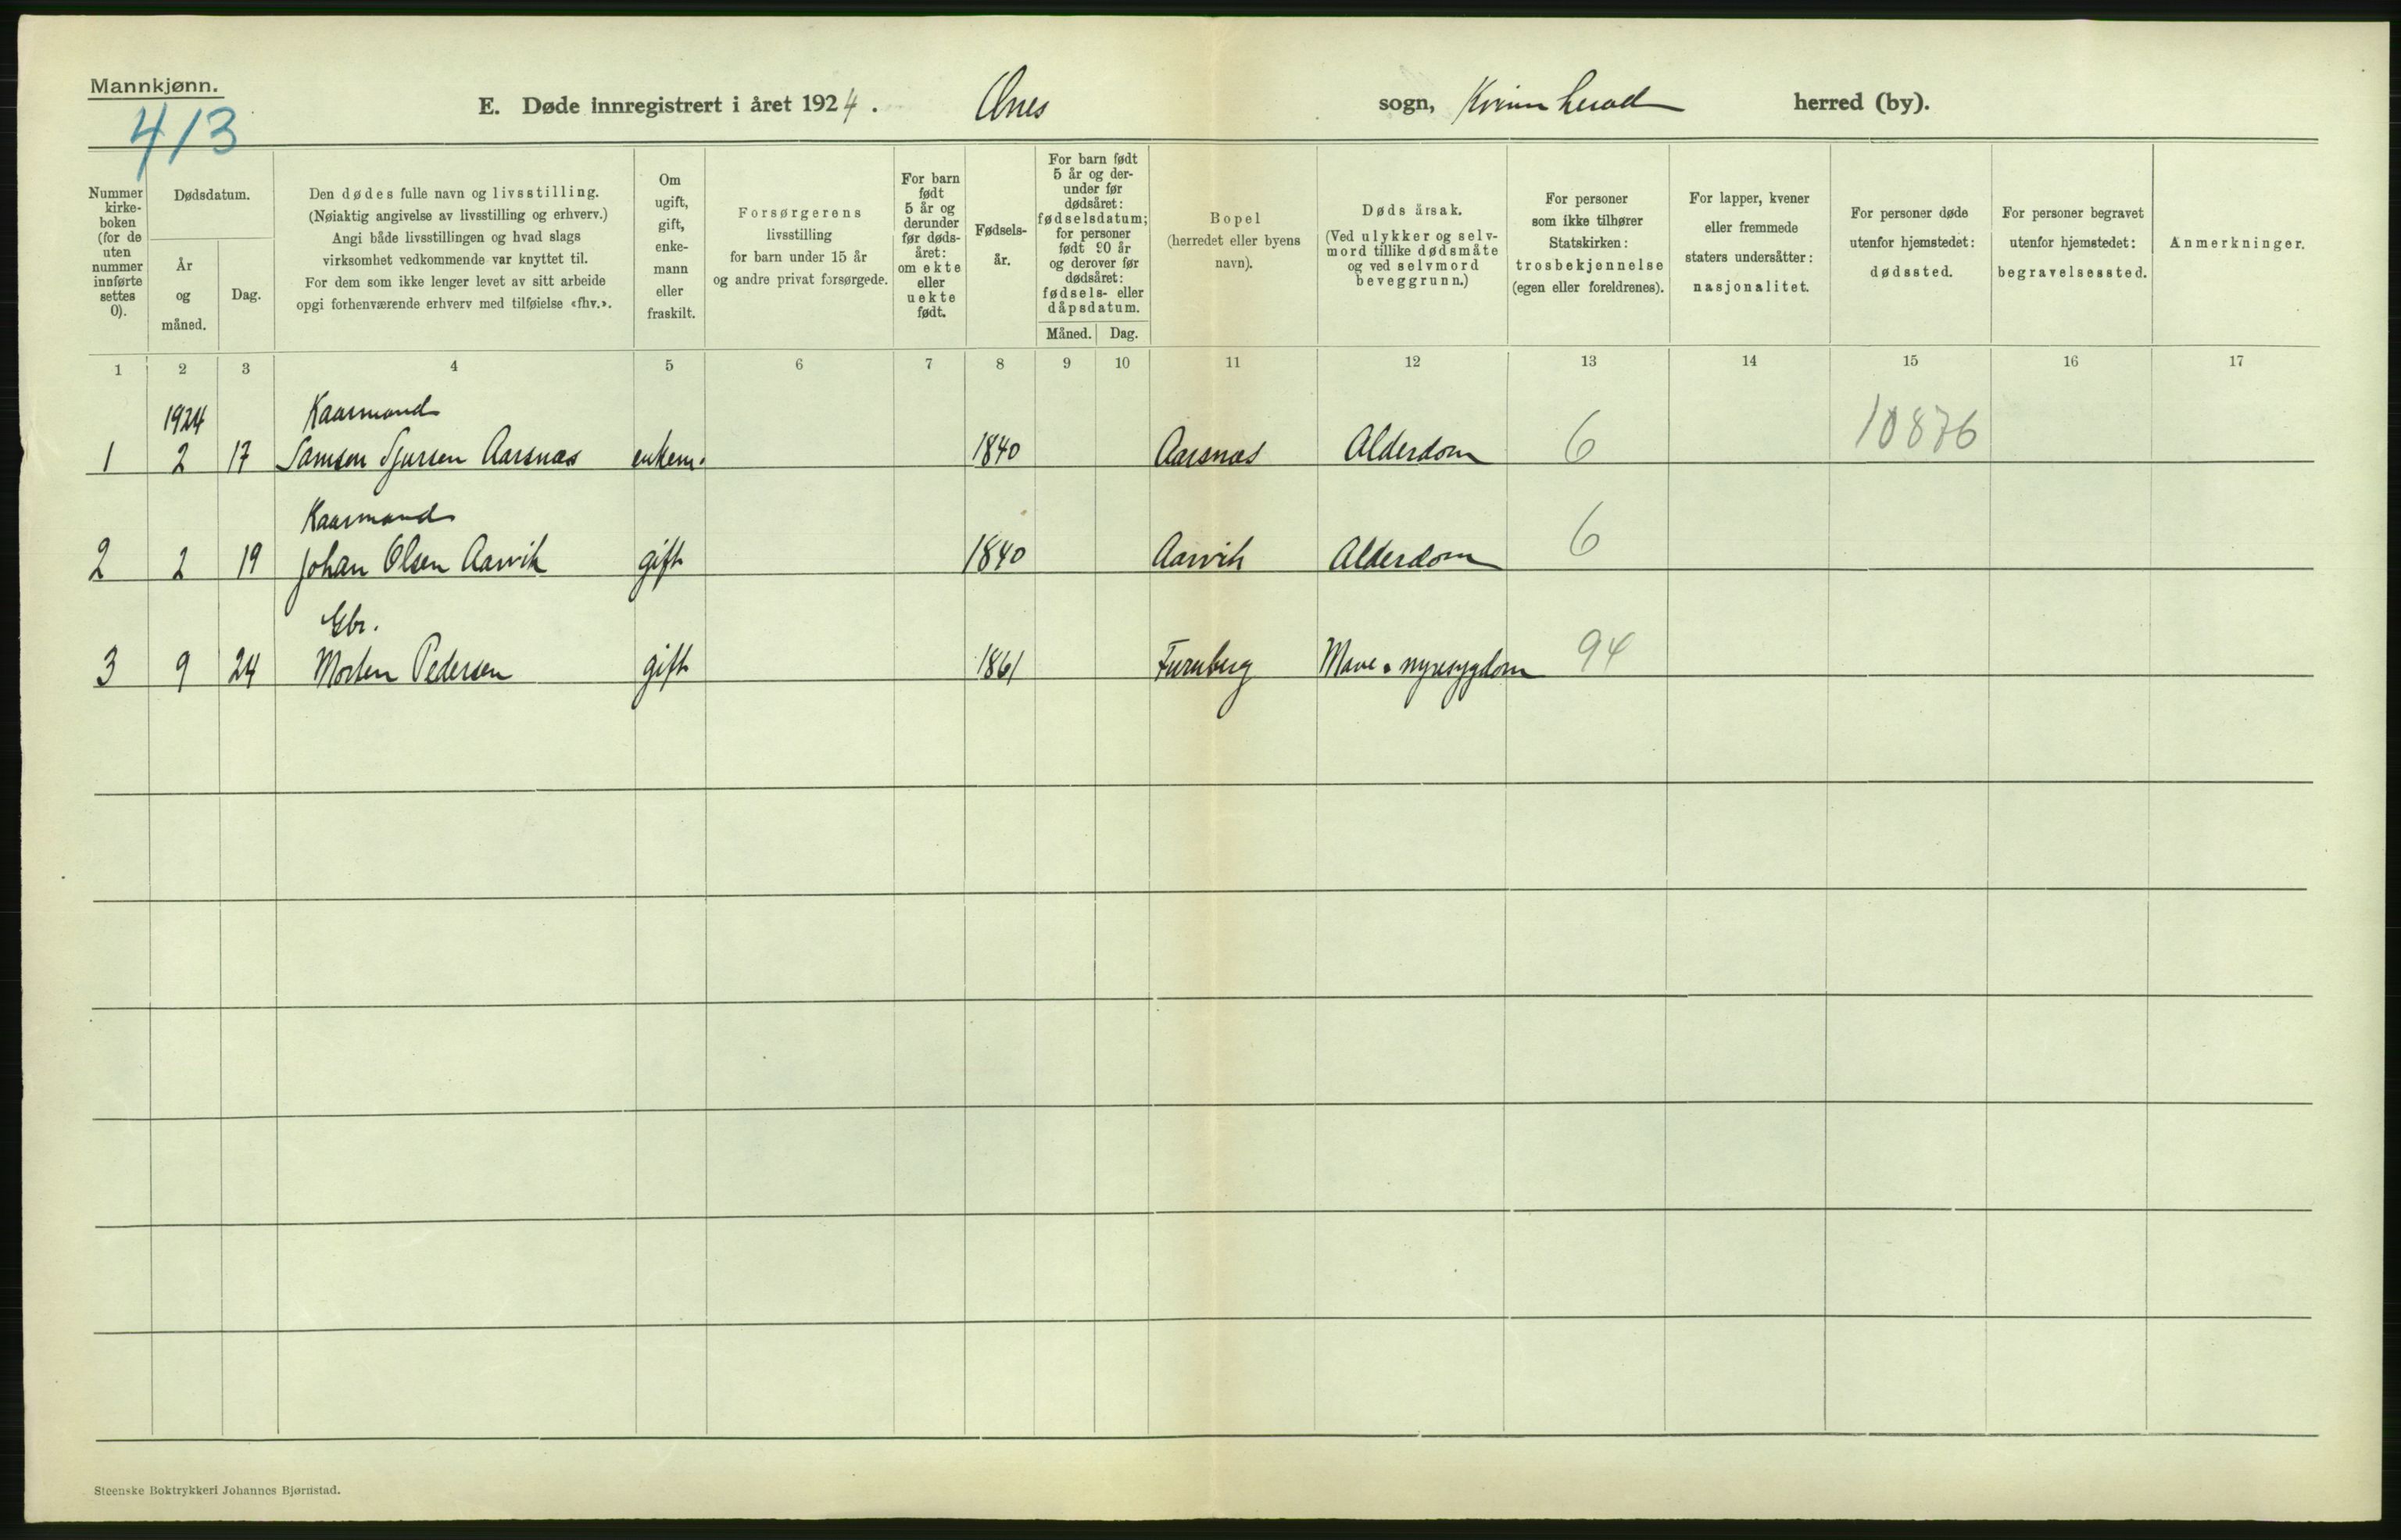 Mannkjønn.
413
E. Døde innregistrert i året 1924. Ænes sogn, Kvinnherad herred (by).
Nummer kirke-boken (for de uten nummer innførte settes 0).
Dødsdatum.
År og måned.
Dag.
Den dødes fulle navn og livsstilling.
(Nøiaktig angivelse av livsstilling og erhverv.)
Angi både livsstillingen og hvad slags
virksomhet vedkommende var knyttet til.
For dem som ikke lenger levet av sitt arbeide
opgi forhenværende erhverv med tilføielse «fhv.».
Om ugift, gift, enke-mann eller fraskilt.
Forsørgerens
livsstilling
for barn under 15 år
og andre privat forsørgede.
For barn født 5 år og derunder før døds-året: om ekte eller uekte født.
Fødsels-år.
For barn født 5 år og der-under før dødsåret: fødselsdatum; for personer født 90 år og derover før dødsåret: fødsels- eller dåpsdatum.
Måned. Dag.
Bopel
(herredet eller byens
navn).
Dødsårsak.
(Ved ulykker og selv-
mord tillike dødsmåte
og ved selvmord
beveggrunn.)
For personer
som ikke tilhører
Statskirken:
trosbekjennelse
(egen eller foreldrenes).
For lapper, kvener
eller fremmede
staters undersåtter:
nasjonalitet.
For personer døde
utenfor hjemstedet:
dødssted.
For personer begravet
utenfor hjemstedet:
begravelsessted.
Anmerkninger.
1 2 3 4 5 6 7 8 9 10 11 12 13 14 15 16 17
1924 Kaarmand
1 2 17 Samson Sjursen Aarsnæs enkem. 1840 Aarsnæs Alderdom 6 10876
Kaarmand
2 2 19 Johan Olsen Aarvik gift 1840 Aarvik Alderdom 6
Gbr.
3 9 24 Morten Pedersen gift 1861 Furuberg Mave o nyresygdom 94
Steenske Boktrykkeri Johannes Bjørnstad.